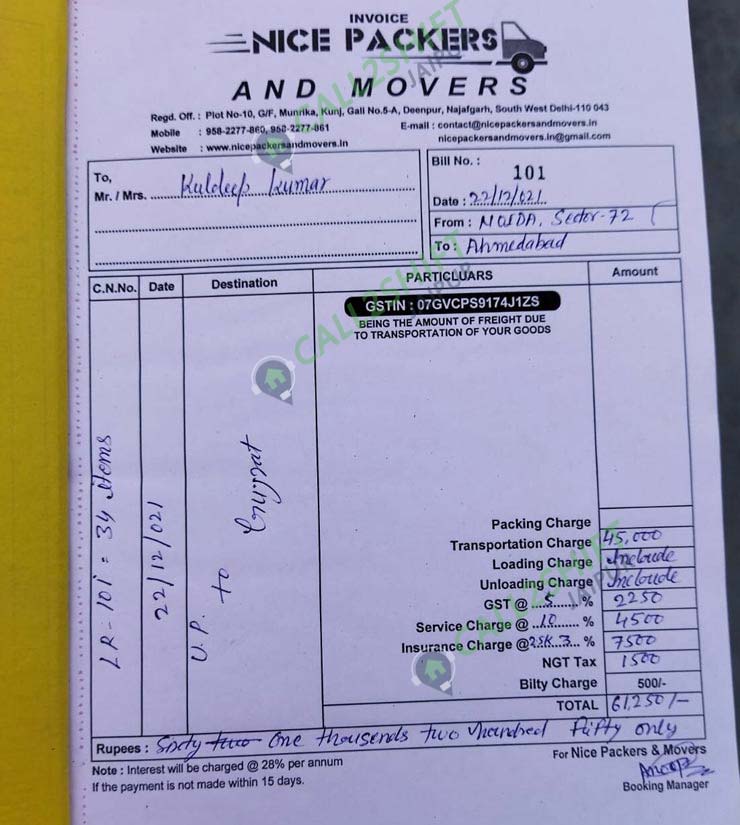 INVOICE
NICE PACKERS
AND MOVERS
Regd. Off. : Plot No-10, G/F, Munrika, Kunj, Gali No.5-A, Deenpur, Najafgarh, South West Delhi-110 043
Mobile : 958-2277-860, 958-2277-861 E-mail : contact@nicepackersandmovers.in
nicepackersandmovers.in@gmail.com
Website : www.nicepackersandmovers.in
To,
Mr. / Mrs. Kuldeep Kumar
Bill No. : 101
Date : 22/12/021
From : NOIDA, Sector-72
To : Ahmedabad
C.N.No. Date Destination PARTICLUARS Amount
GSTIN : 07GVCPS9174J1ZS
BEING THE AMOUNT OF FREIGHT DUE
TO TRANSPORTATION OF YOUR GOODS
LR=101 = 34 items
22/12/021
U.P. to Gujrat
Packing Charge
Transportation Charge 45,000
Loading Charge Include
Unloading Charge Include
GST @ 5 % 2250
Service Charge @ 10 % 4500
Insurance Charge @ 25K 3 % 7500
NGT Tax 1500
Bilty Charge 500/-
TOTAL 61,250/-
Rupees : Sixty two One thousands two hundred fifty only
Note : Interest will be charged @ 28% per annum
If the payment is not made within 15 days.
For Nice Packers & Movers
Anoop
Booking Manager
CALL2SHIFT
JAIPUR
CALL2SHIFT
JAIPUR
CALL2SHIFT
JAIPUR